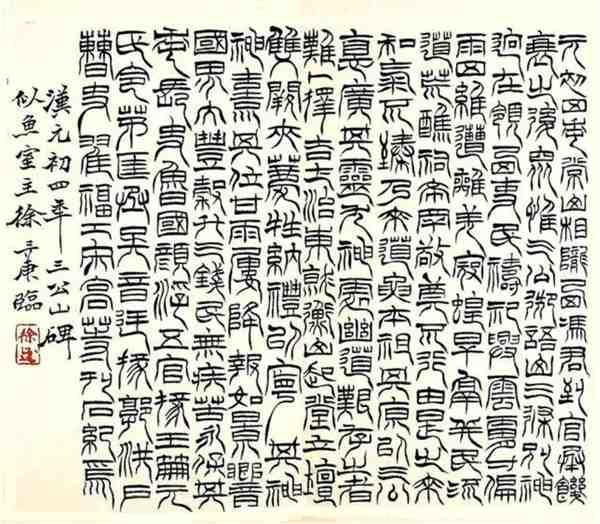 元初四年常山相隴西馮君到官承饑
衰之後惟三公御語山三條別神
迥在領西吏民禱祀興雲膚寸徧
雨四維遭離羌寇蝗旱鬲我民流
道荒醮祠希罕敬奠不行由是之來
和氣不臻乃來道要本祖其原以三公
悳廣其靈尤神處幽道艱存者
難卜擇吉土治東就衡山起堂立壇
雙闕夾薦牲納禮以寧其神
神熹其位甘雨屢降報如景響
國界大豐穀斗三錢民無疾苦永保其
年長史魯國顏浮五官掾王笧元
氏令茅匡丞吳音廷掾郭洪戶
曹史翟福工宋高等刊石紀焉
漢元初四年三公山碑
似魚室主徐三庚臨